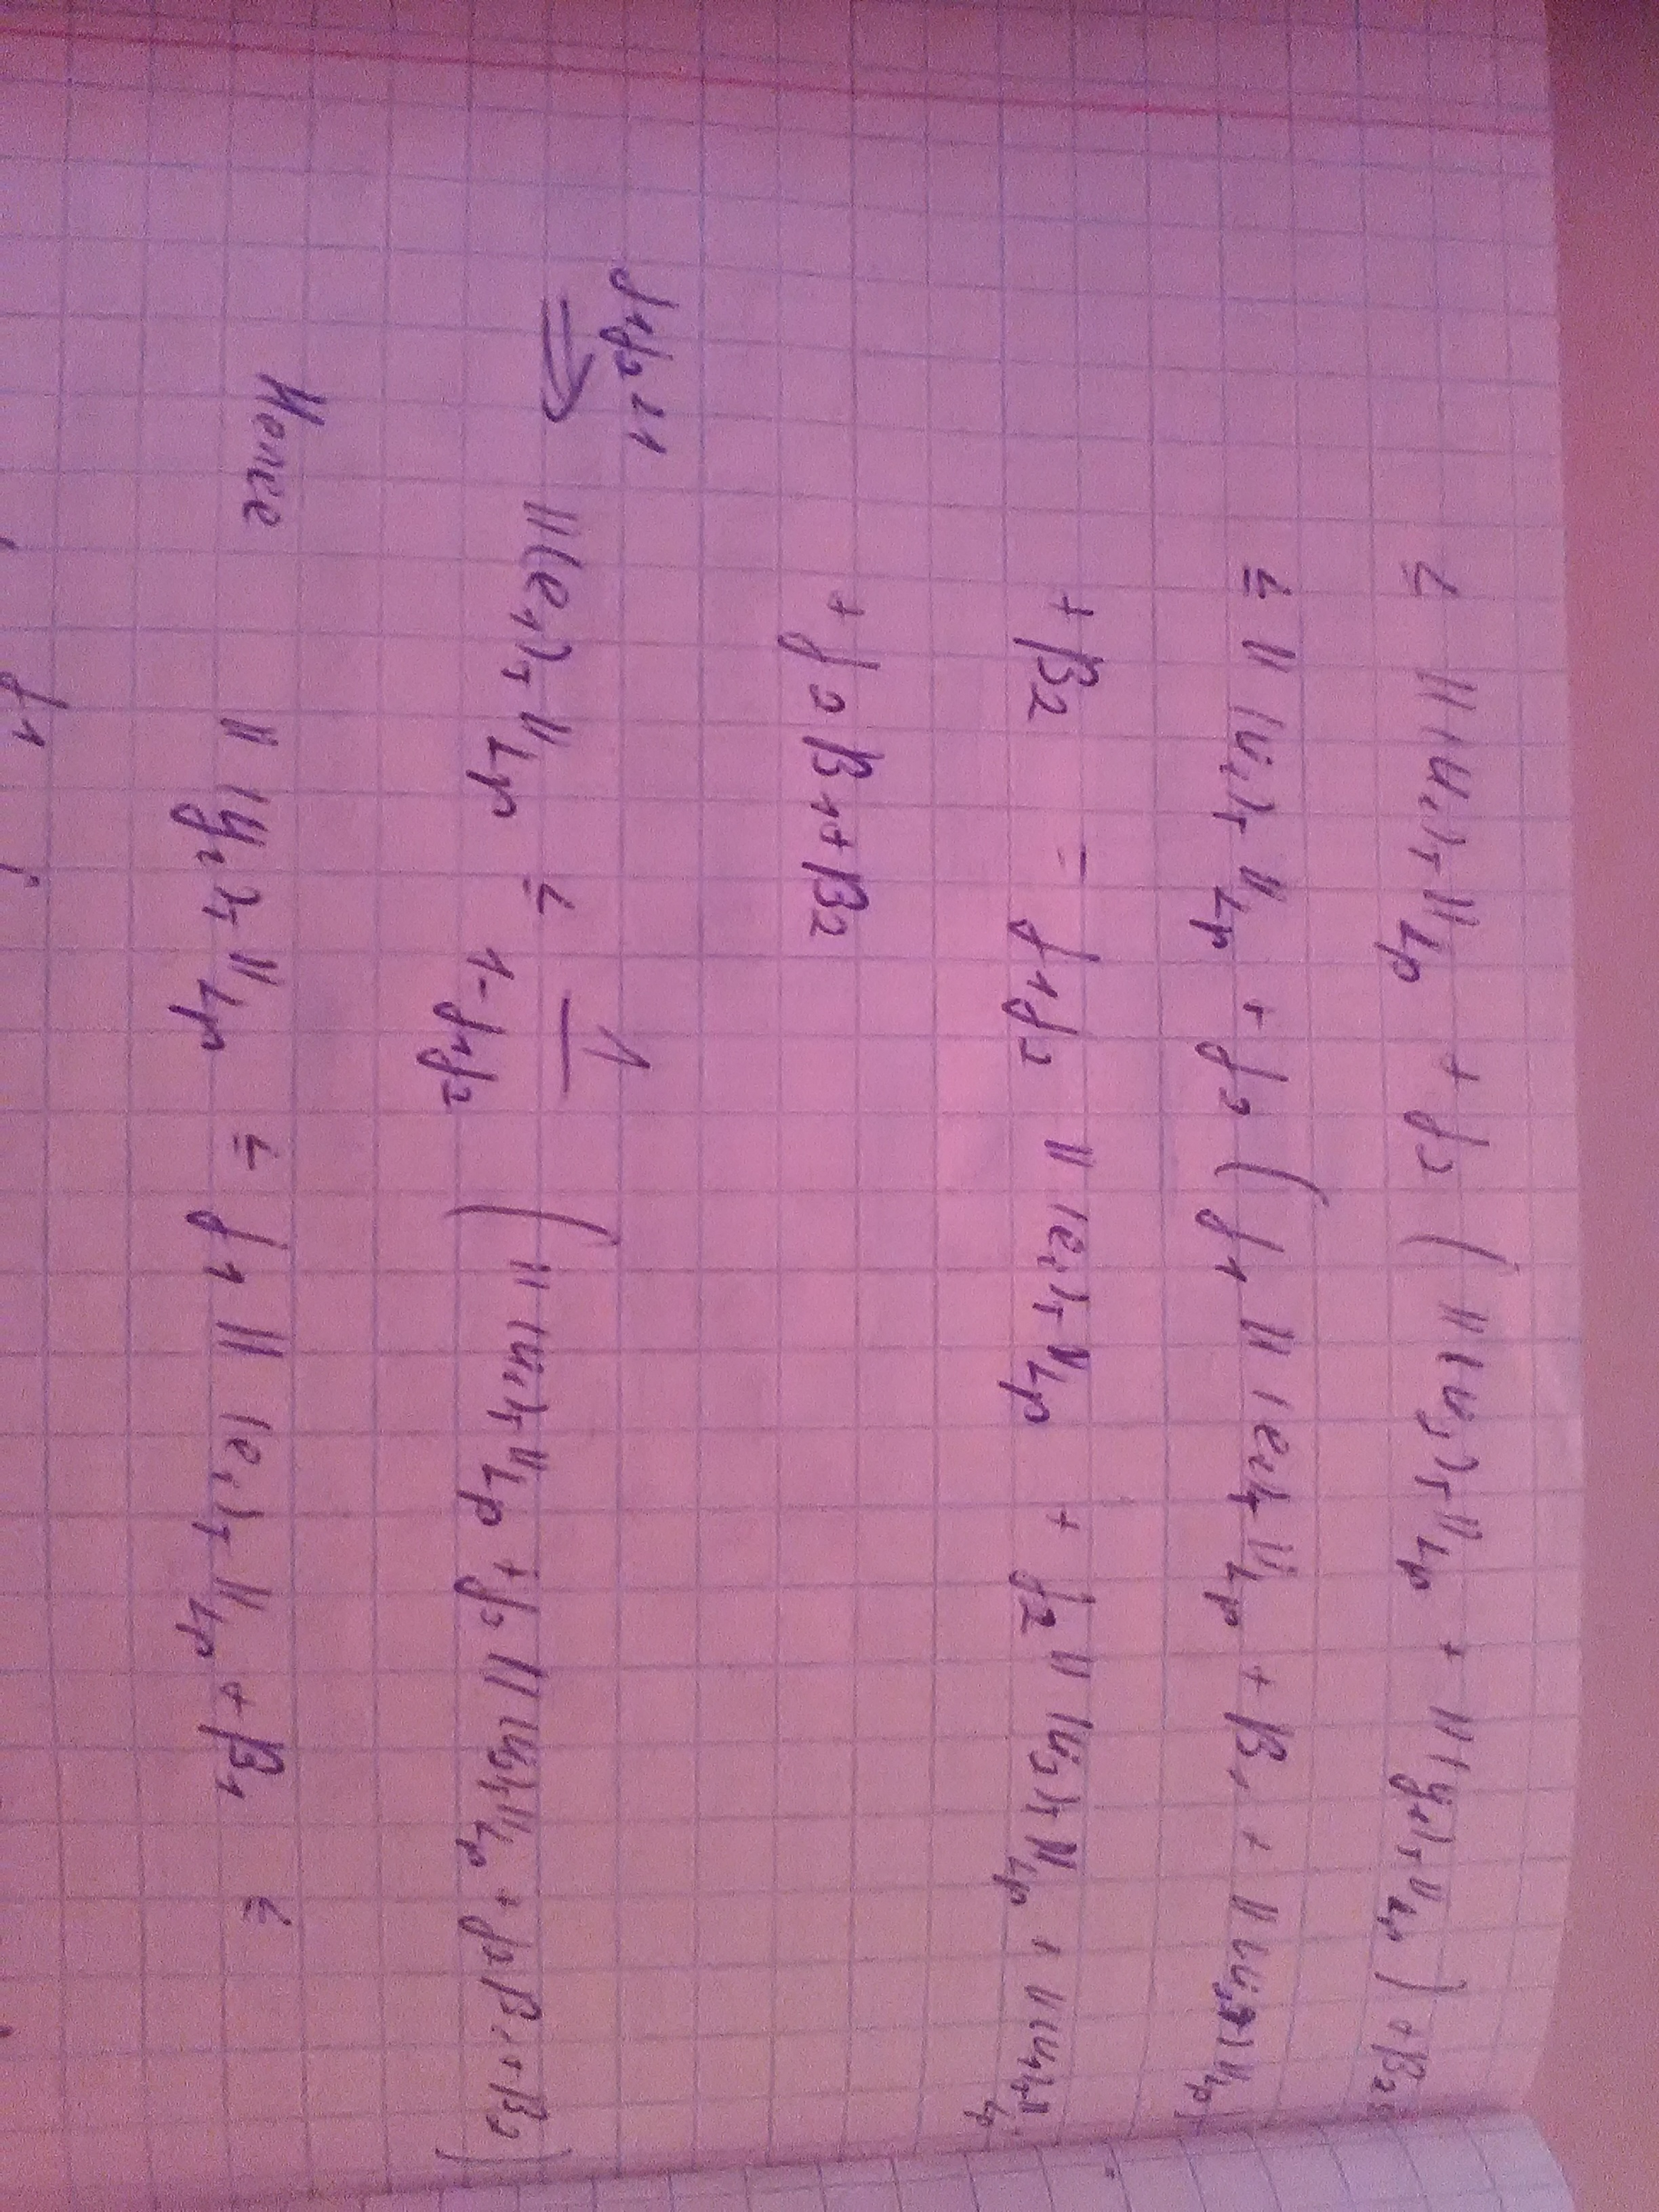 ≤ ||(u₁)_T||_Lp + γ₂ ( ||(u₂)_T||_Lp + ||(y₁)_T||_Lp ) + β₂ ≤
≤ ||(u₁)_T||_Lp + γ₂ ( γ₁ ||(e₁)_T||_Lp + β₁ + ||(u₂)_T||_Lp )
+ β₂ = γ₁γ₂ ||(e₁)_T||_Lp + γ₂ ||(u₂)_T||_Lp + ||(u₁)_T||_Lp
+ γ₂ β₁ + β₂
γ₁γ₂ < 1
⟹ ||(e₁)_T||_Lp ≤ 1/(1-γ₁γ₂) ( ||(u₁)_T||_Lp + γ₂ ||(u₂)_T||_Lp + γ₂β₁ + β₂ )
Hence ||(y₁)_T||_Lp ≤ γ₁ ||(e₁)_T||_Lp + β₁ ≤
γ₁